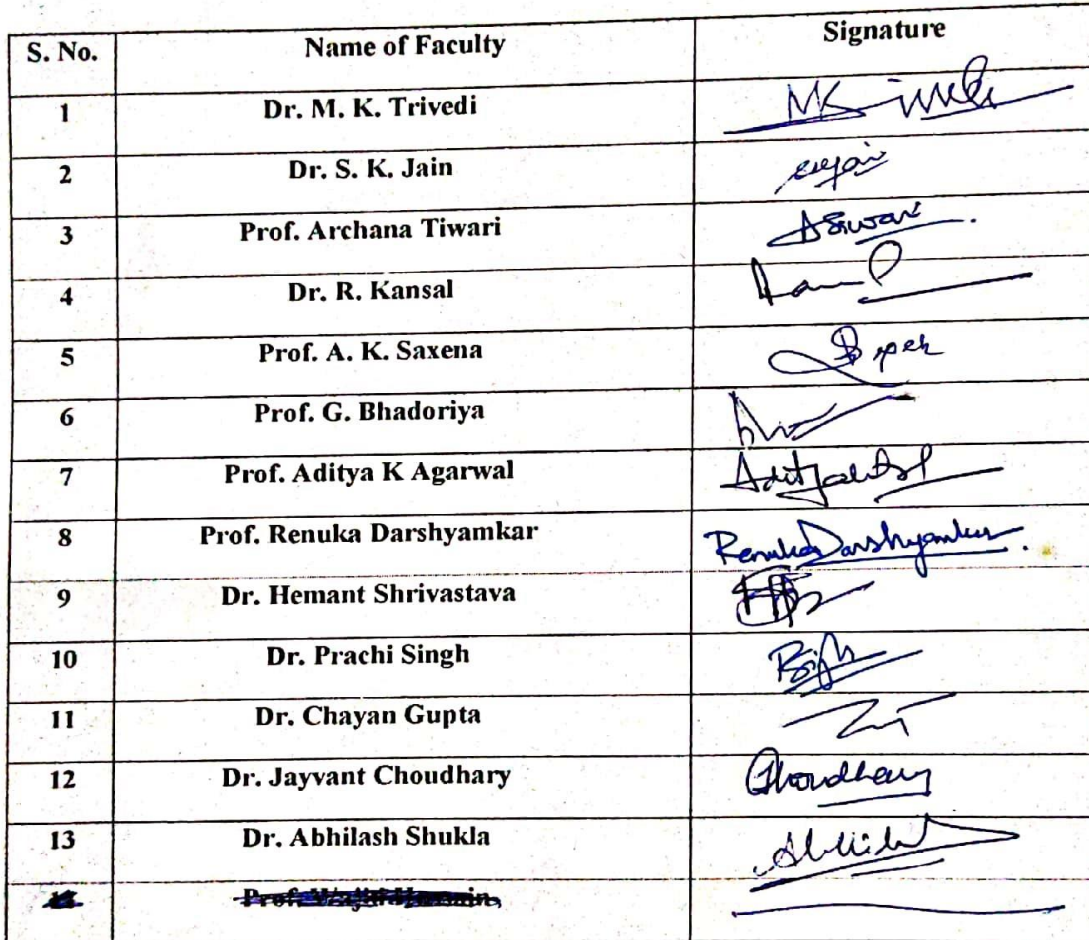 S. No. Name of Faculty Signature
1 Dr. M. K. Trivedi MK
2 Dr. S. K. Jain
3 Prof. Archana Tiwari
4 Dr. R. Kansal
5 Prof. A. K. Saxena
6 Prof. G. Bhadoriya
7 Prof. Aditya K Agarwal
8 Prof. Renuka Darshyamkar Renuka Darshyamkar
9 Dr. Hemant Shrivastava
10 Dr. Prachi Singh
11 Dr. Chayan Gupta
12 Dr. Jayvant Choudhary Choudhary
13 Dr. Abhilash Shukla
Prof.